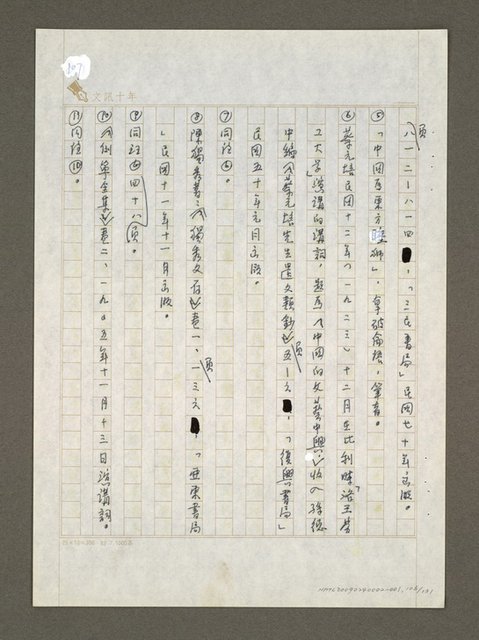 107
文訊十年
頁八一二—八一四,「三民書局」民國七十年出版。
⑤「中國為東方睡獅」,拿破崙語,筆者。
⑥蔡元培民國十二年(一九二三)十二月在比利時「沙王勞
工大學」演講的講詞,題為《中國的文藝中興》,收入孫德
中編《蔡元培先生遺文類鈔》頁五—六,「復興書局」
民國五十年元月出版。
⑦同註⑥。
⑧陳獨秀著:《獨秀文存》卷一、頁一三六,「亞東書局
」民國十一年十一月出版。
⑨同註⑥四十八頁。
⑩《列寧全集》卷二、一九〇五年十一月十三日演講詞。
⑪同註⑩。
25×12=300
NMTL20090240002-001, 108/131